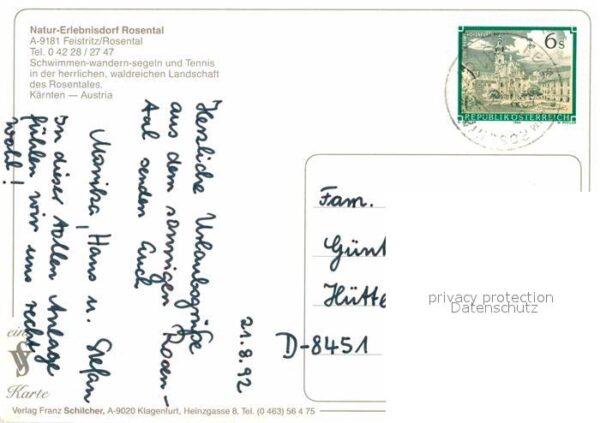 Natur-Erlebnisdorf Rosental
A-9181 Feistritz/Rosental
Tel. 0 42 28 / 27 47
Schwimmen-wandern-segeln und Tennis
in der herrlichen, waldreichen Landschaft
des Rosentales.
Kärnten — Austria
6s
REPUBLIK ÖSTERREICH
Herzliche Urlaubsgrüße
aus dem sonnigen Rosen-
tal senden Euch
Monika, Hans u. Stefan
In dieser tollen Anlage
fühlen wir uns recht
wohl!
21.8.92
Fam.
Günt
Hütte
D-8451
privacy protection
Datenschutz
eine
Karte
Verlag Franz Schilcher, A-9020 Klagenfurt, Heinzgasse 8, Tel. (0 463) 56 4 75